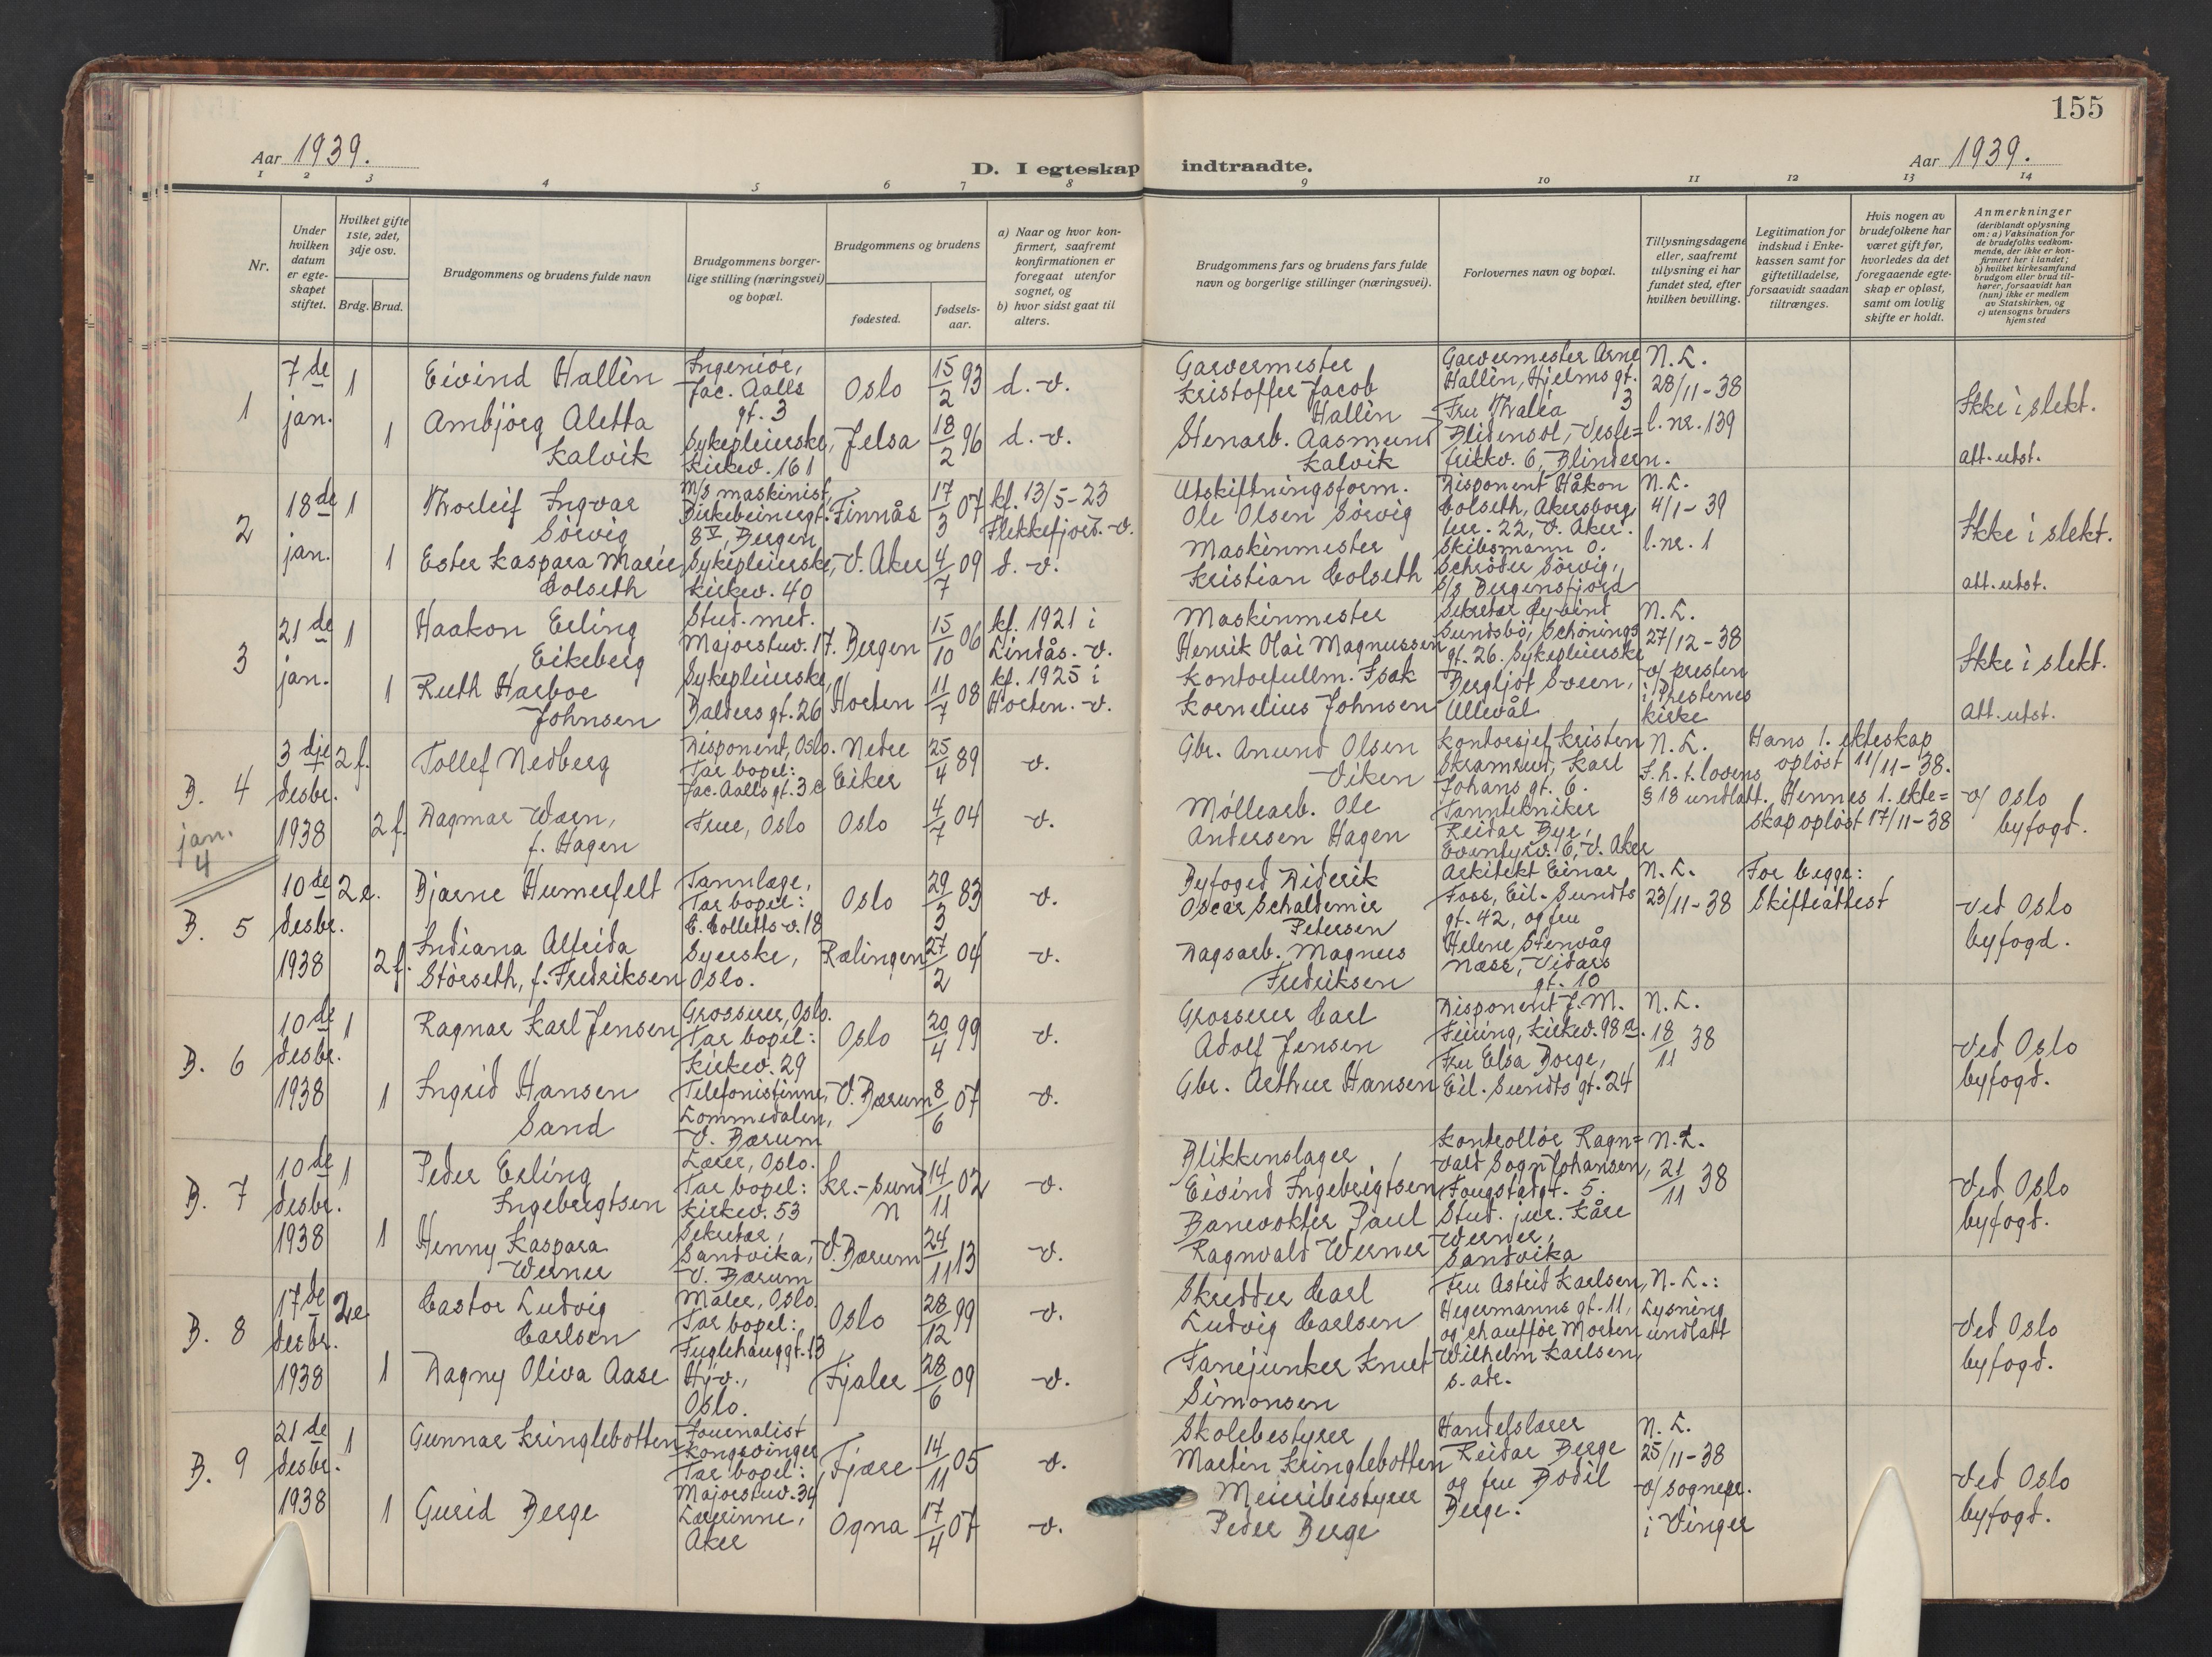 155
Aar 1939.
D. I egteskap indtraadte.
Aar 1939.
1 2 3 4 5 6 7 8 9 10 11 12 13 14
Nr.
Under hvilken datum er egteskapet stiftet.
Hvilket gifte 1ste, 2det, 3dje osv.
Brdg. Brud.
Brudgommens og brudens fulde navn
Brudgommens borgerlige stilling (næringsvei) og bopæl.
Brudgommens og brudens
fødested.
fødselsaar.
a) Naar og hvor konfirmert, saafremt konfirmationen er foregaat utenfor sognet, og
b) hvor sidst gaat til alters.
Brudgommens fars og brudens fars fulde navn og borgerlige stillinger (næringsvei).
Forlovernes navn og bopæl.
Tillysningsdagene eller, saafremt tillysning ei har fundet sted, efter hvilken bevilling.
Legitimation for indskud i Enkekassen samt for giftetilladelse, forsaavidt saadan tiltrænges.
Hvis nogen av brudefolkene har været gift før, hvorledes da det foregaaende egteskap er opløst, samt om lovlig skifte er holdt.
Anmerkninger (deriblandt oplysning om: a) Vaksination for de brudefolks vedkommende, der ikke er konfirmert her i landet; b) hvilket kirkesamfund brudgom eller brud tilhører, forsaavidt han (hun) ikke er medlem av Statskirken, og c) utensogns bruders hjemsted
1
7de jan.
1
Eivind Hallèn
Ingeniör, Jac. Aalls gt. 3
Oslo
15/2 93
d. v.
Garvermester Kristoffer Jacob Hallèn
Garvermester Arne Hallèn, Hjelms gt. 3
N. L. 28/11-38
l. nr. 139
Ikke i slekt.
1
Ambjörg Aletta Kalvik
Sykepleierske, Kirkev. 161
Jelsa
18/2 96
d. v.
Stenarb. Aasmund Kalvik
Fru Thalia Blidensol, Vestefrikkv. 6, Blindern.
att. utst.
2
18de jan.
1
Thorleif Ingvar Sörvig
M/S maskinist, Birkebeinergt. 8 V, Bergen
Finnås
17/3 07
kf. 13/5-23 Flekkefjord. v.
Utskiftningsform. Ole Olsen Sörvig
Disponent Håkon Colseth, Akersborg terr. 22, V. Aker.
N. L. 4/1-39
l. nr. 1
Ikke i slekt.
1
Ester Kaspara Marie Colseth
Sykepleierske, Kirkev. 40
V. Aker
4/7 09
d. v.
Maskinmester Kristian Colseth
Skibsmann O. Schröder Sörvig, S/S Bergensfjord
att. utst.
3
21de jan.
1
Haakon Erling Eikeberg
Stud. med. Majorstuv. 17.
Bergen
15/10 06
kf. 1921 i Lindås. v.
Maskinmester Henrik Olai Magnussen
Sekretær Øyvind Sundsbö, Schönings gt. 26.
N. L. 27/12-38
v/ presten i Prestenes kirke
Ikke i slekt.
1
Ruth Harboe Johnsen
Sykepleierske, Balders gt. 26
Horten
11/7 08
kf. 1925 i Horten. v.
Kontorfullm. Isak Kornelius Johnsen
Sykepleierske Bergljot Sveen, Ullevål
att. utst.
B. 4
jan. 4
3dje desbr. 1938
2 f.
Tollef Nedberg
Disponent, Oslo. Tar bopel: Jac. Aalls gt. 3 c
Nedre Eiker
25/4 89
v.
Gbr. Anund Olsen Viken
Kontorsjef Kristen Skramrud, Karl Johans gt. 6.
N. L. F. h. t. lovens § 18 undlatt.
Hans 1. ekteskap opløst 11/11-38. Hennes 1. ekteskap opløst 17/11-38
v/ Oslo byfogd.
2 f.
Dagmar Wærn, f. Hagen
Frue, Oslo
Oslo
4/7 04
v.
Möllearb. Ole Andersen Hagen
Tanntekniker Reidar Bye, Eventyrv. 6, V. Aker
B. 5
10de desbr. 1938
2 e.
Bjarne Humerfelt
Tannlæge, Tar bopel: C. Colletts v. 18
Oslo
29/3 83
v.
Byfoged Diderik Oscar Schaldemir Petersen
Arkitekt Einar Foss, Eil. Sundts gt. 42, og fru
N. L. 23/11-38
For begge: Skifteattest
Ved Oslo byfogd.
2 f.
Indiana Alfrida Störseth, f. Fredriksen
Syerske, Oslo.
Rælingen
27/2 04
v.
Dagsarb. Magnus Fredriksen
Helene Stenvåg Næss, Vidars gt. 10
B. 6
10de desbr. 1938
1
Ragnar Karl Jensen
Grosserer, Oslo. Tar bopel: Kirkev. 29
Oslo
20/4 99
v.
Grosserer Carl Adolf Jensen
Disponent J. M. Feiring, Kirkev. 98 a.
N. L. 18/11 38
Ved Oslo byfogd.
1
Ingrid Hansen Sand
Telefonistinne, Lommedalen, V. Bærum
V. Bærum
8/6 07
v.
Gbr. Arthur Hansen
Fru Elsa Borge, Eil. Sundts gt. 24
B. 7
10de desbr. 1938
1
Peder Erling Ingebrigtsen
Lærer, Oslo. Tar bopel: Kirkev. 53
Kr.-sund N
14/11 02
v.
Blikkenslager Eivind Ingebrigtsen
Kontrollör Ragnvald Sogn Johansen, Fougstadgt. 5.
N. L. 21/11 38
Ved Oslo byfogd.
1
Henny Kaspara Werner
Sekretær, Sandvika, V. Bærum
V. Bærum
24/11 13
v.
Banevokter Paul Ragnvald Werner
Stud. jur. Kåre Werner, Sandvika
B. 8
17de desbr. 1938
2e
Castor Ludvig Carlsen
Maler, Oslo. Tar bopel: Fuglehauggt. 13
Oslo
28/12 99
v.
Skredder Carl Ludvig Carlsen
Fru Astrid Karlsen, Hegermanns gt. 11, og chauffør Morten Wilhelm Karlsen, s. adr.
N. L.: Lysning undlatt
Ved Oslo byfogd.
1
Dagny Oliva Aase
Hjv., Oslo.
Fjaler
28/6 09
v.
Fanejunker Knut Simonsen
B. 9
21de desbr. 1938
1
Gunnar Kringlebotten
Journalist Kongsvinger, Tar bopel: Majorstuv. 34
Fjære
14/11 05
v.
Skolebestyrer Martin Kringlebotten
Handelslærer Reidar Berge og fru Bodil Berge.
N. L. 25/11-38 v/ sognepr. i Vinger
Ved Oslo byfogd.
1
Gurid Berge
Lærerinne, Aker
Ogna
17/4 07
v.
Meieribestyrer Peder Berge